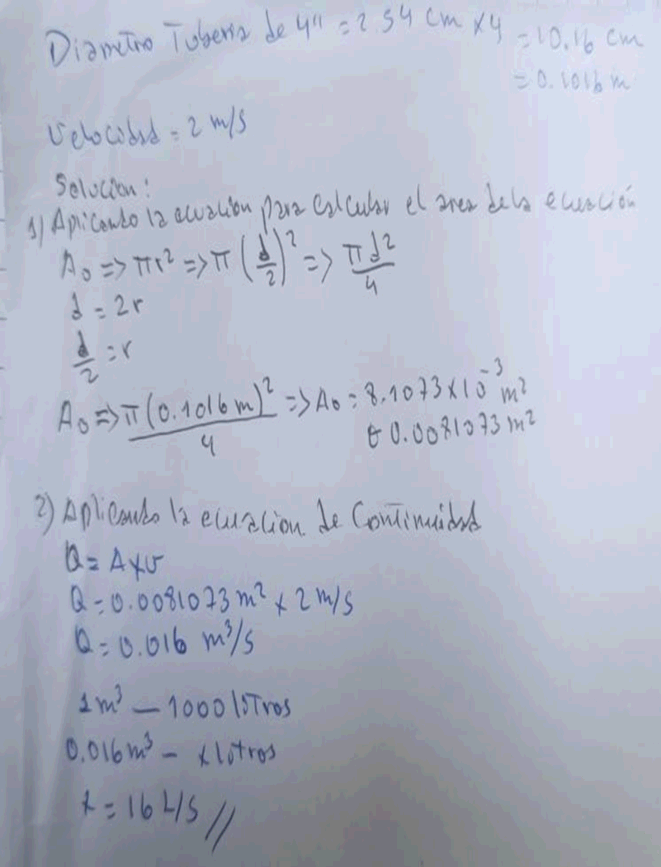 Diametro Tuberia de 4" = 2.54 cm x 4 = 10.16 cm
= 0.1016 m
Velocidad = 2 m/s
Solucion:
1) Aplicando la ecuación para calcular el area de la ecuación
A₀ => πr² => π (d/2)² => πd²/4
d = 2r
d/2 = r
A₀ => π(0.1016 m)²/4 => A₀ = 8.1073 x 10⁻³ m²
o 0.0081073 m²
2) Aplicando la ecuacion de Continuidad
Q = A x v
Q = 0.0081073 m² x 2 m/s
Q = 0.016 m³/s
1 m³ — 1000 litros
0.016 m³ — x litros
x = 16 L/s //